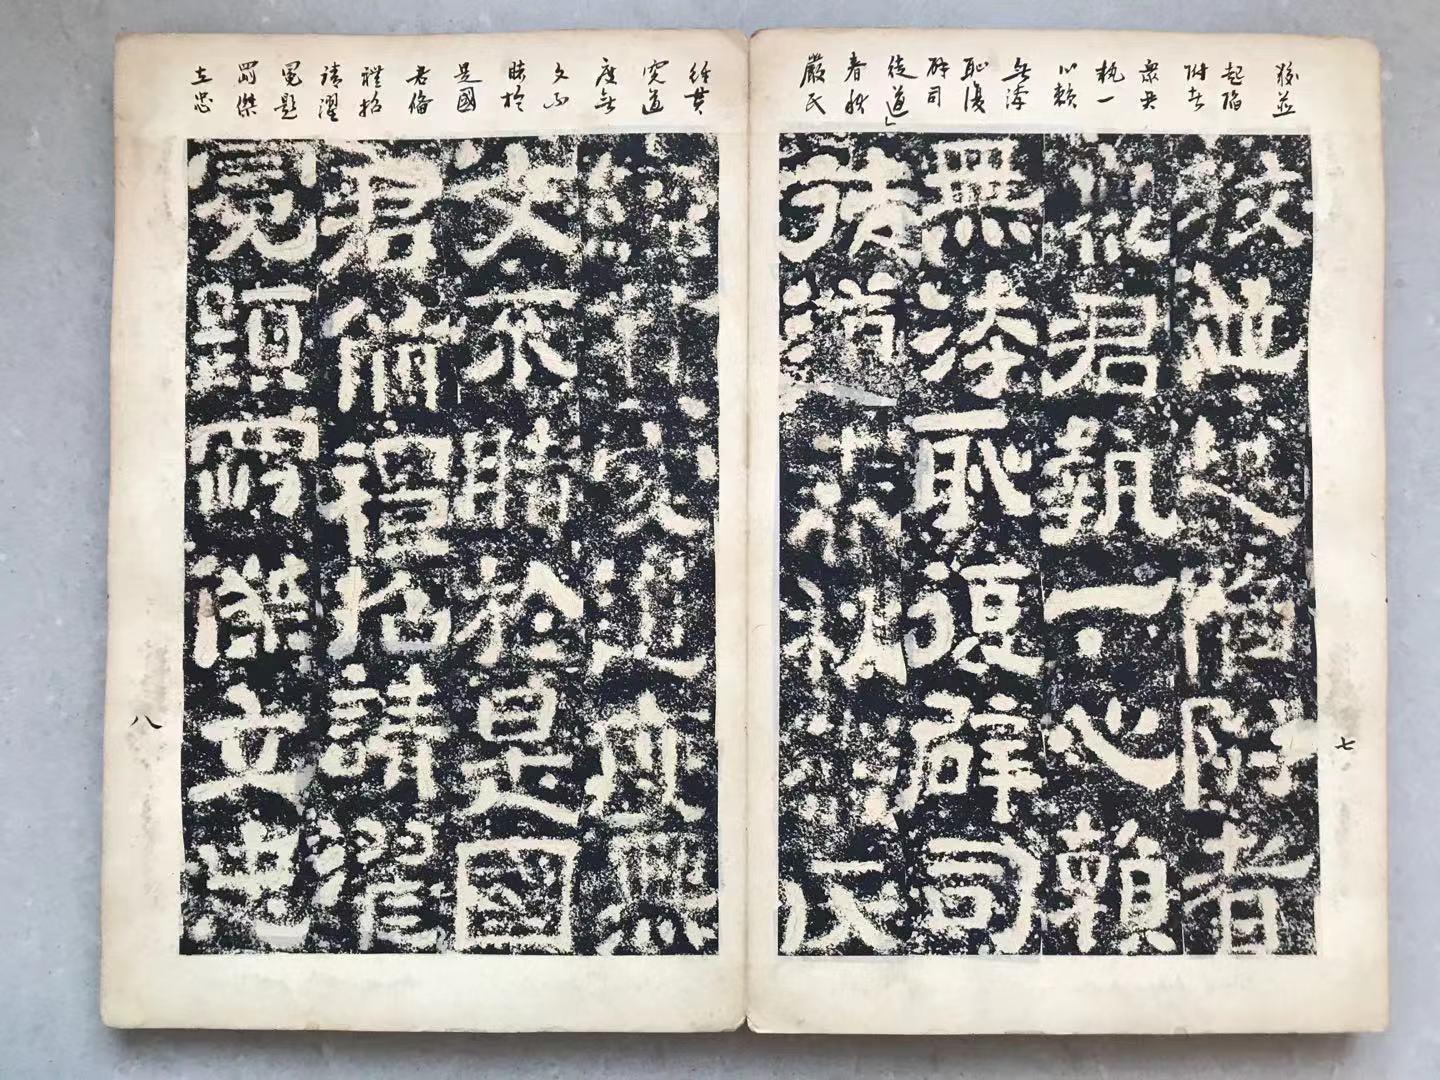 狡並
起陷
附者
衆君
執一
心賴
無洿
恥復
辟司
徒道」
春秋
嚴氏
狡並起陷附者
衆君執一心賴
無洿恥復辟司
徒道春秋嚴氏
七
經其
究道
度無
文不
睹於
是國
君備
禮招
請濯
冕題
傑
立忠
經其究道度無
文不睹於是國
君備禮招請濯
冕題傑立忠
八